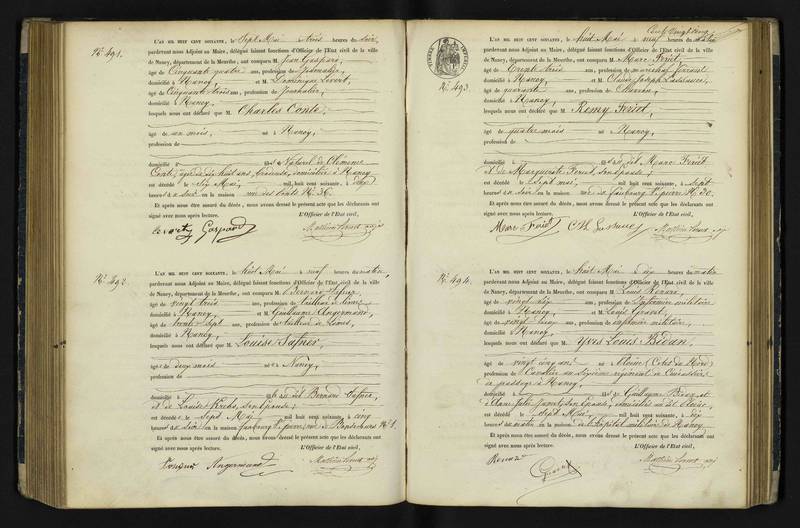 N° 491.
L'AN MIL HUIT CENT SOIXANTE, le Sept Mai à trois heures du soir,
pardevant nous Adjoint au Maire, délégué faisant fonctions d'Officier de l'État civil de la ville
de Nancy, département de la Meurthe, ont comparu M. Jean Gaspard,
âgé de Cinquante quatre ans, profession de
domicilié à Nancy, et M. Dominique
âgé de Cinquante trois ans, profession de Journalier,
domicilié à Nancy,
lesquels nous ont déclaré que M. Charles Conte,
âgé de un mois, né à Nancy,
profession de
domicilié à fils Naturel de Clémence
Conte, âgée de dix huit ans, domiciliée à Nancy
est décédé le Six Mai, mil huit cent soixante, à
heures du soir en la maison rue des N° 36.
Et après nous être assuré du décès, nous avons dressé le présent acte que les déclarants ont
signé avec nous après lecture. L'Officier de l'État civil,
Gaspard
N° 492.
L'AN MIL HUIT CENT SOIXANTE, le huit Mai à neuf heures du matin,
pardevant nous Adjoint au Maire, délégué faisant fonctions d'Officier de l'État civil de la ville
de Nancy, département de la Meurthe, ont comparu M. Bernard
âgé de vingt trois ans, profession de tailleur de limes
domicilié à Nancy, et M. Guillaume Angermann
âgé de trente sept ans, profession de tailleur de limes,
domicilié à Nancy,
lesquels nous ont déclaré que M. Louise
âgé de deux mois née à Nancy,
profession de
domicilié à fille du dit Bernard
et de Louise Krebs, son épouse;
est décédée le Sept Mai, mil huit cent soixante, à cinq
heures du soir en la maison faubourg St pierre, rue de Bonsecours N° 1.
Et après nous être assuré du décès, nous avons dressé le présent acte que les déclarants ont
signé avec nous après lecture. L'Officier de l'État civil,
Angermann
N° 493.
L'AN MIL HUIT CENT SOIXANTE, le huit Mai à neuf heures du matin
pardevant nous Adjoint au Maire, délégué faisant fonctions d'Officier de l'État civil de la ville
de Nancy, département de la Meurthe, ont comparu M. Marc Feriot,
âgé de trente trois ans, profession de maréchal ferrant
domicilié à Nancy, et M. Claude Joseph
âgé de quarante ans, profession de
domicilié à Nancy,
lesquels nous ont déclaré que M. Remy Feriot,
âgé de quatre mois né à Nancy,
profession de
domicilié à fils du dit Marc Feriot
et de Marguerite Feriet, son épouse;
est décédé le Sept mai, mil huit cent soixante, à sept
heures du soir en la maison rue du faubourg St pierre N° 30.
Et après nous être assuré du décès, nous avons dressé le présent acte que les déclarants ont
signé avec nous après lecture. L'Officier de l'État civil,
Marc Feriot
N° 494.
L'AN MIL HUIT CENT SOIXANTE, le huit Mai à dix heures du matin
pardevant nous Adjoint au Maire, délégué faisant fonctions d'Officier de l'État civil de la ville
de Nancy, département de la Meurthe, ont comparu M. Louis
âgé de vingt six ans, profession de Infirmier militaire
domicilié à Nancy, et M. Louis
âgé de vingt ans, profession de infirmier militaire,
domicilié à Nancy,
lesquels nous ont déclaré que M. Yves Louis Bidan,
âgé de vingt cinq ans né à (Côtes du Nord)
profession de Cavalier au dixième régiment de Cuirassiers
de passage à Nancy,
domicilié à fils de Guillaume Bidan et
d'Anne son épouse, domiciliés au dit
est décédé le Sept Mai, mil huit cent soixante, à dix
heures du matin en la maison de l'hôpital militaire de Nancy,
Et après nous être assuré du décès, nous avons dressé le présent acte que les déclarants ont
signé avec nous après lecture. L'Officier de l'État civil,